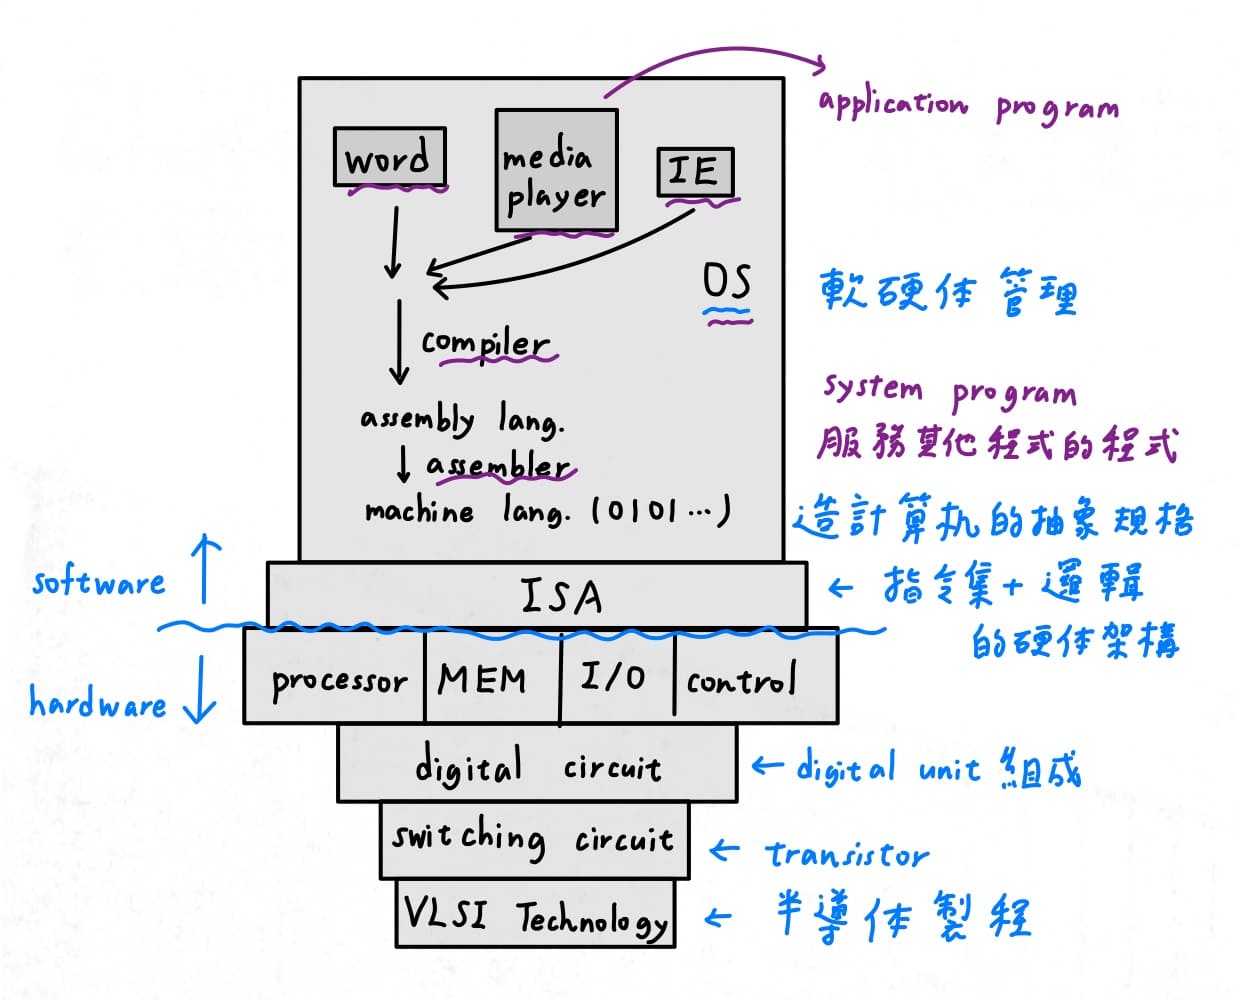 application program
word
media
player
IE
OS
軟硬体管理
compiler
system program
assembly lang.
服務其他程式的程式
assembler
machine lang. (0101…)
造計算机的抽象規格
software
ISA
← 指令集+邏輯
的硬体架構
processor
MEM
I/O
control
hardware
digital circuit
← digital unit 組成
switching circuit
← transistor
VLSI Technology
← 半導体製程